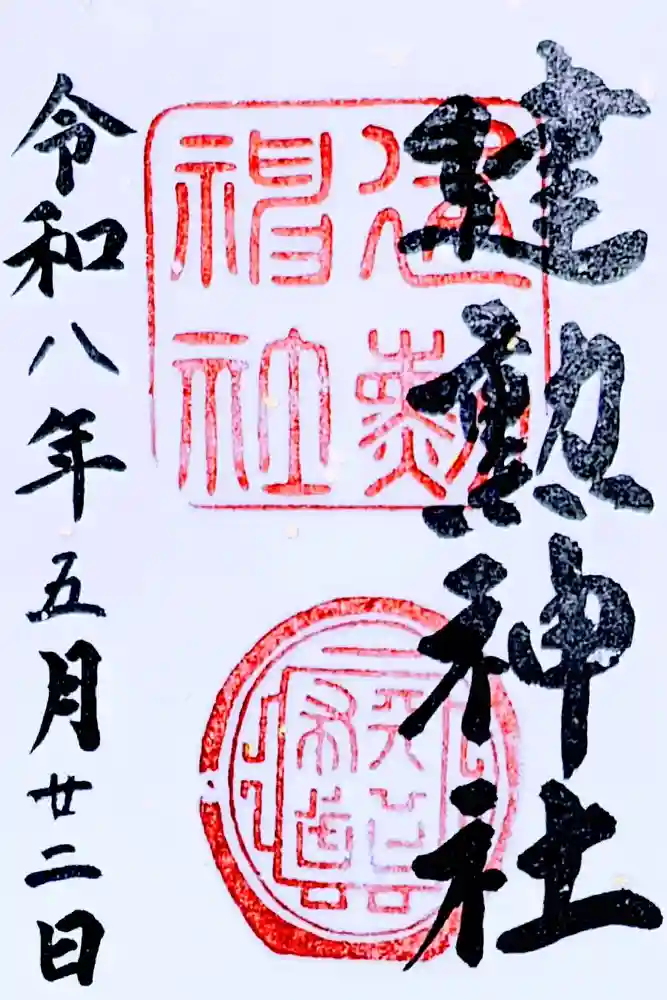 建勲神社
建勲
神社
令和八年五月廿二日